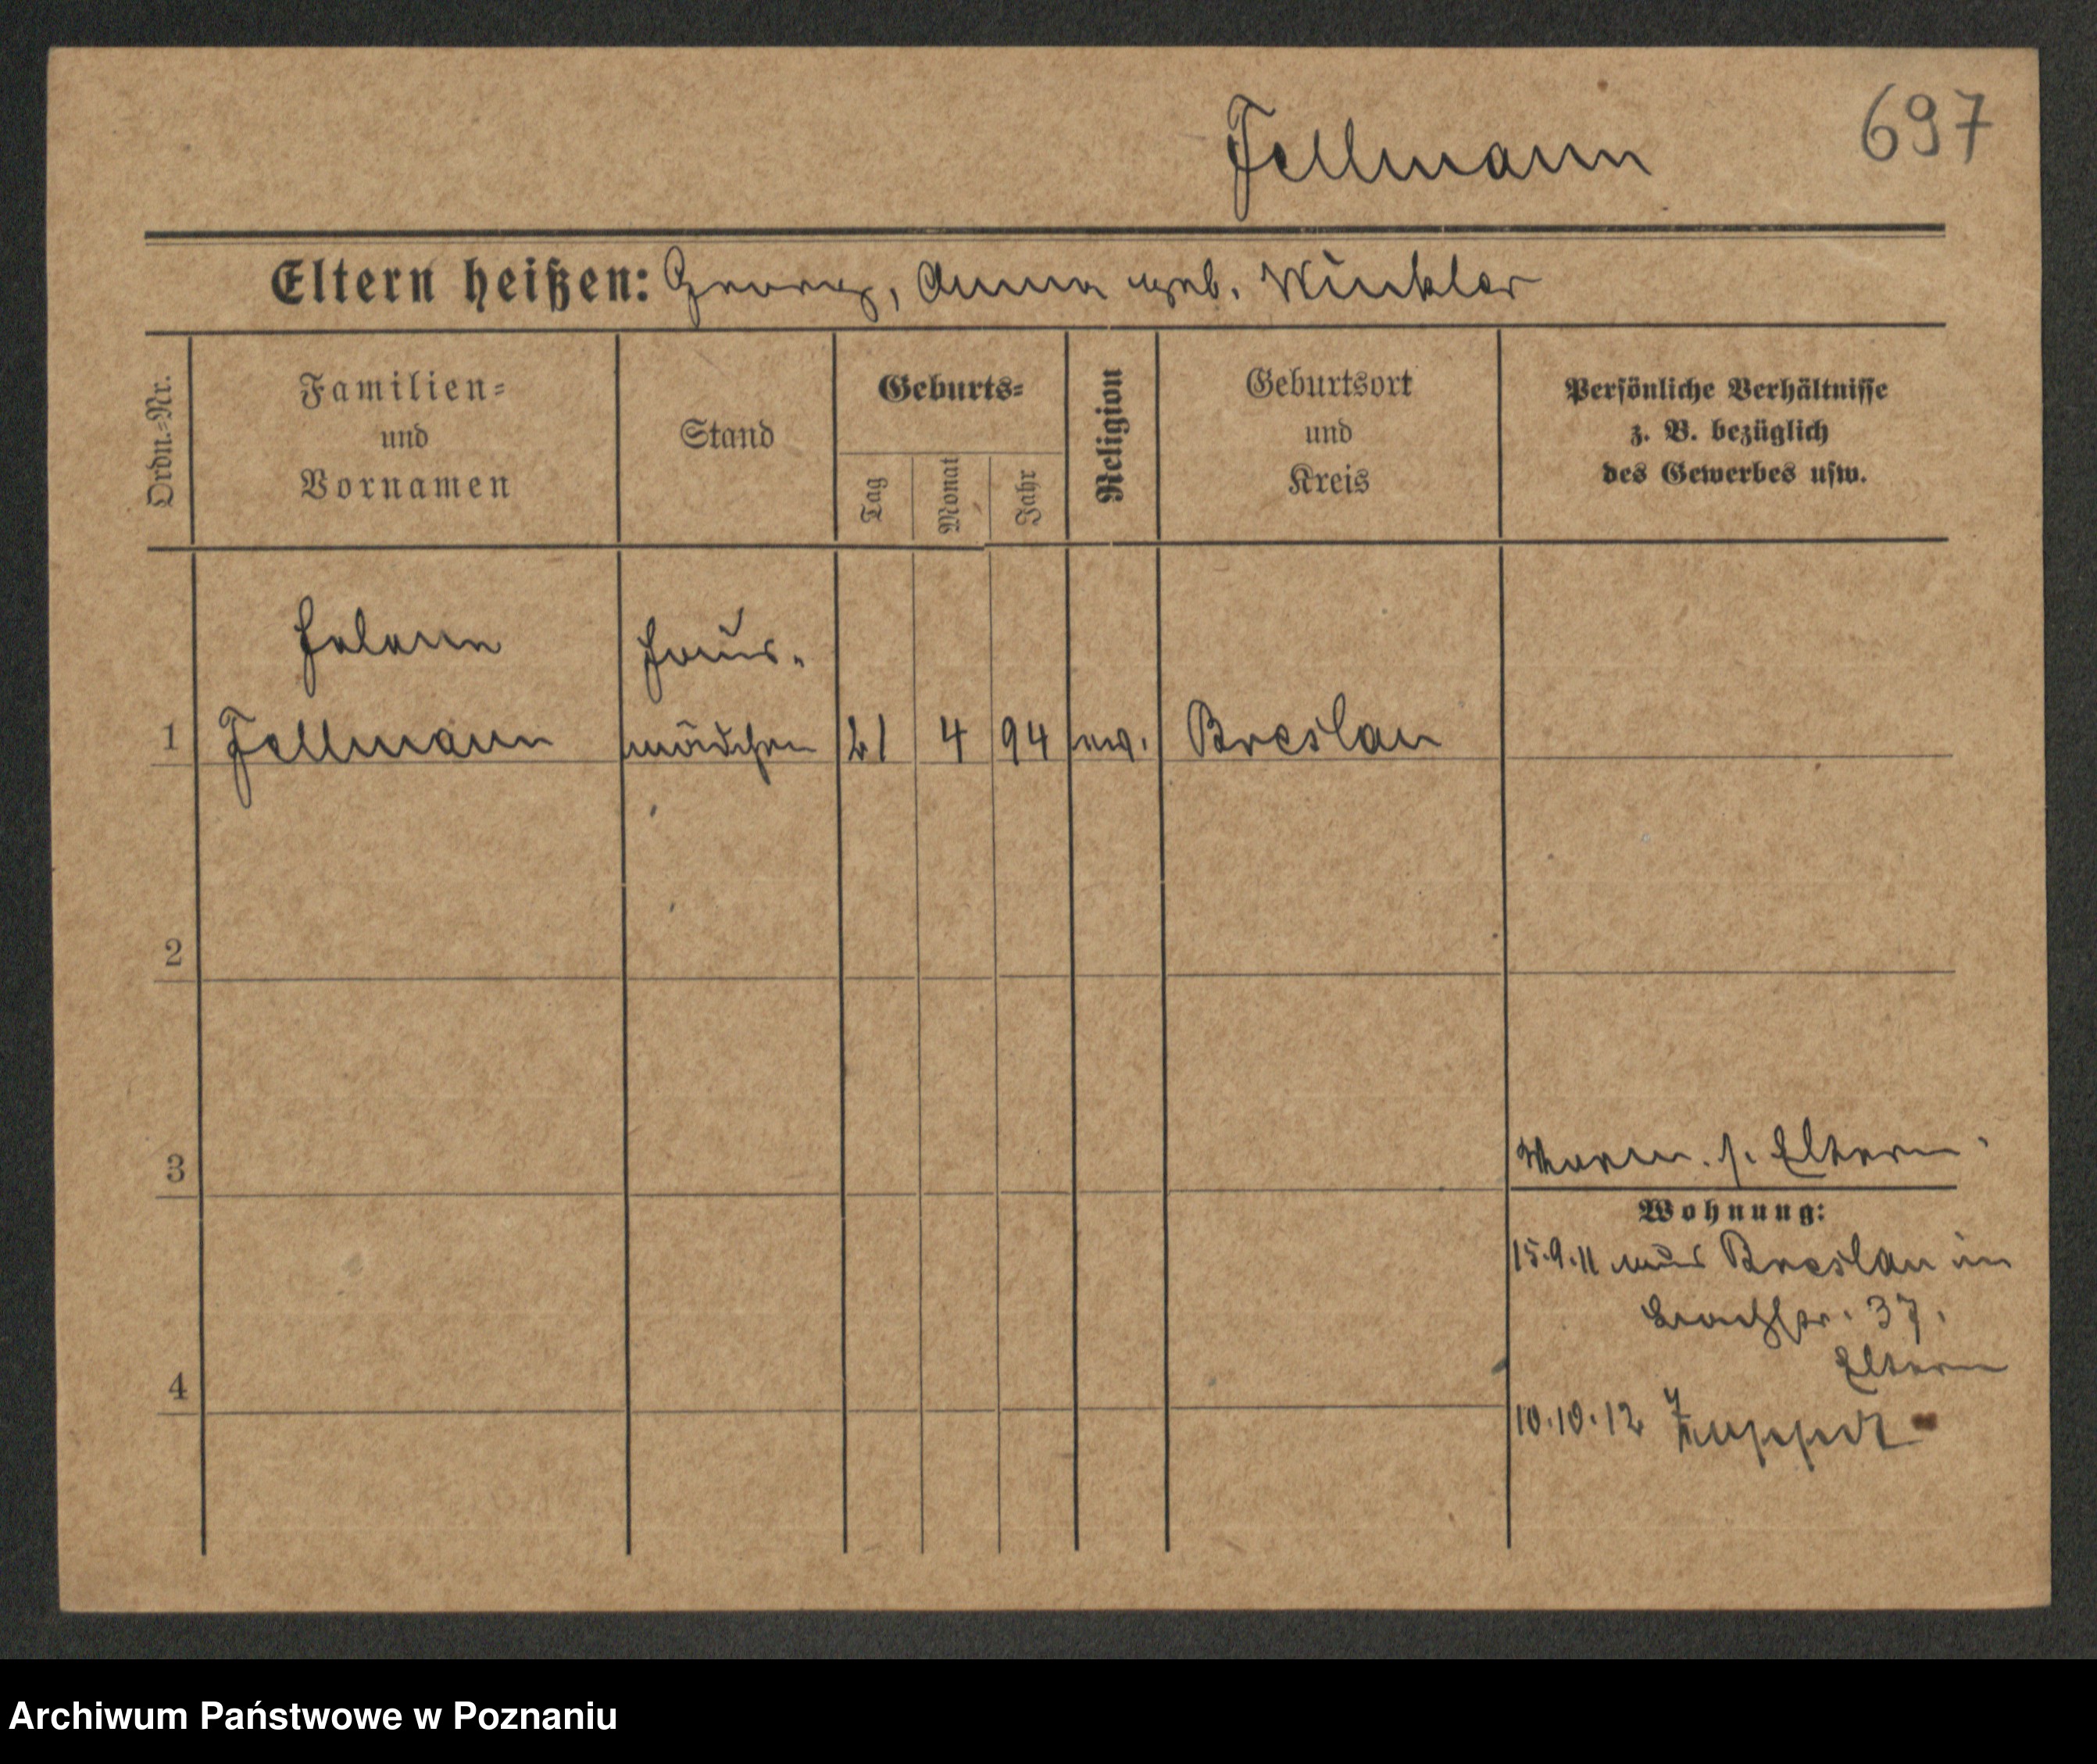 Fellmann
697
Eltern heißen: Georg, Anna geb. Winkler
Ordn.-Nr.
Familien-
und
Vornamen
Stand
Geburts-
Tag
Monat
Jahr
Religion
Geburtsort
und
Kreis
Persönliche Verhältnisse
z. B. bezüglich
des Gewerbes usw.
Helene
Haus-
1 Fellmann mädchen 21 4 94 ev. Breslau
2
3
s. Eltern.
Wohnung:
15.9.11 aus Breslau in
37.
Eltern
4
10.10.12
Archiwum Państwowe w Poznaniu